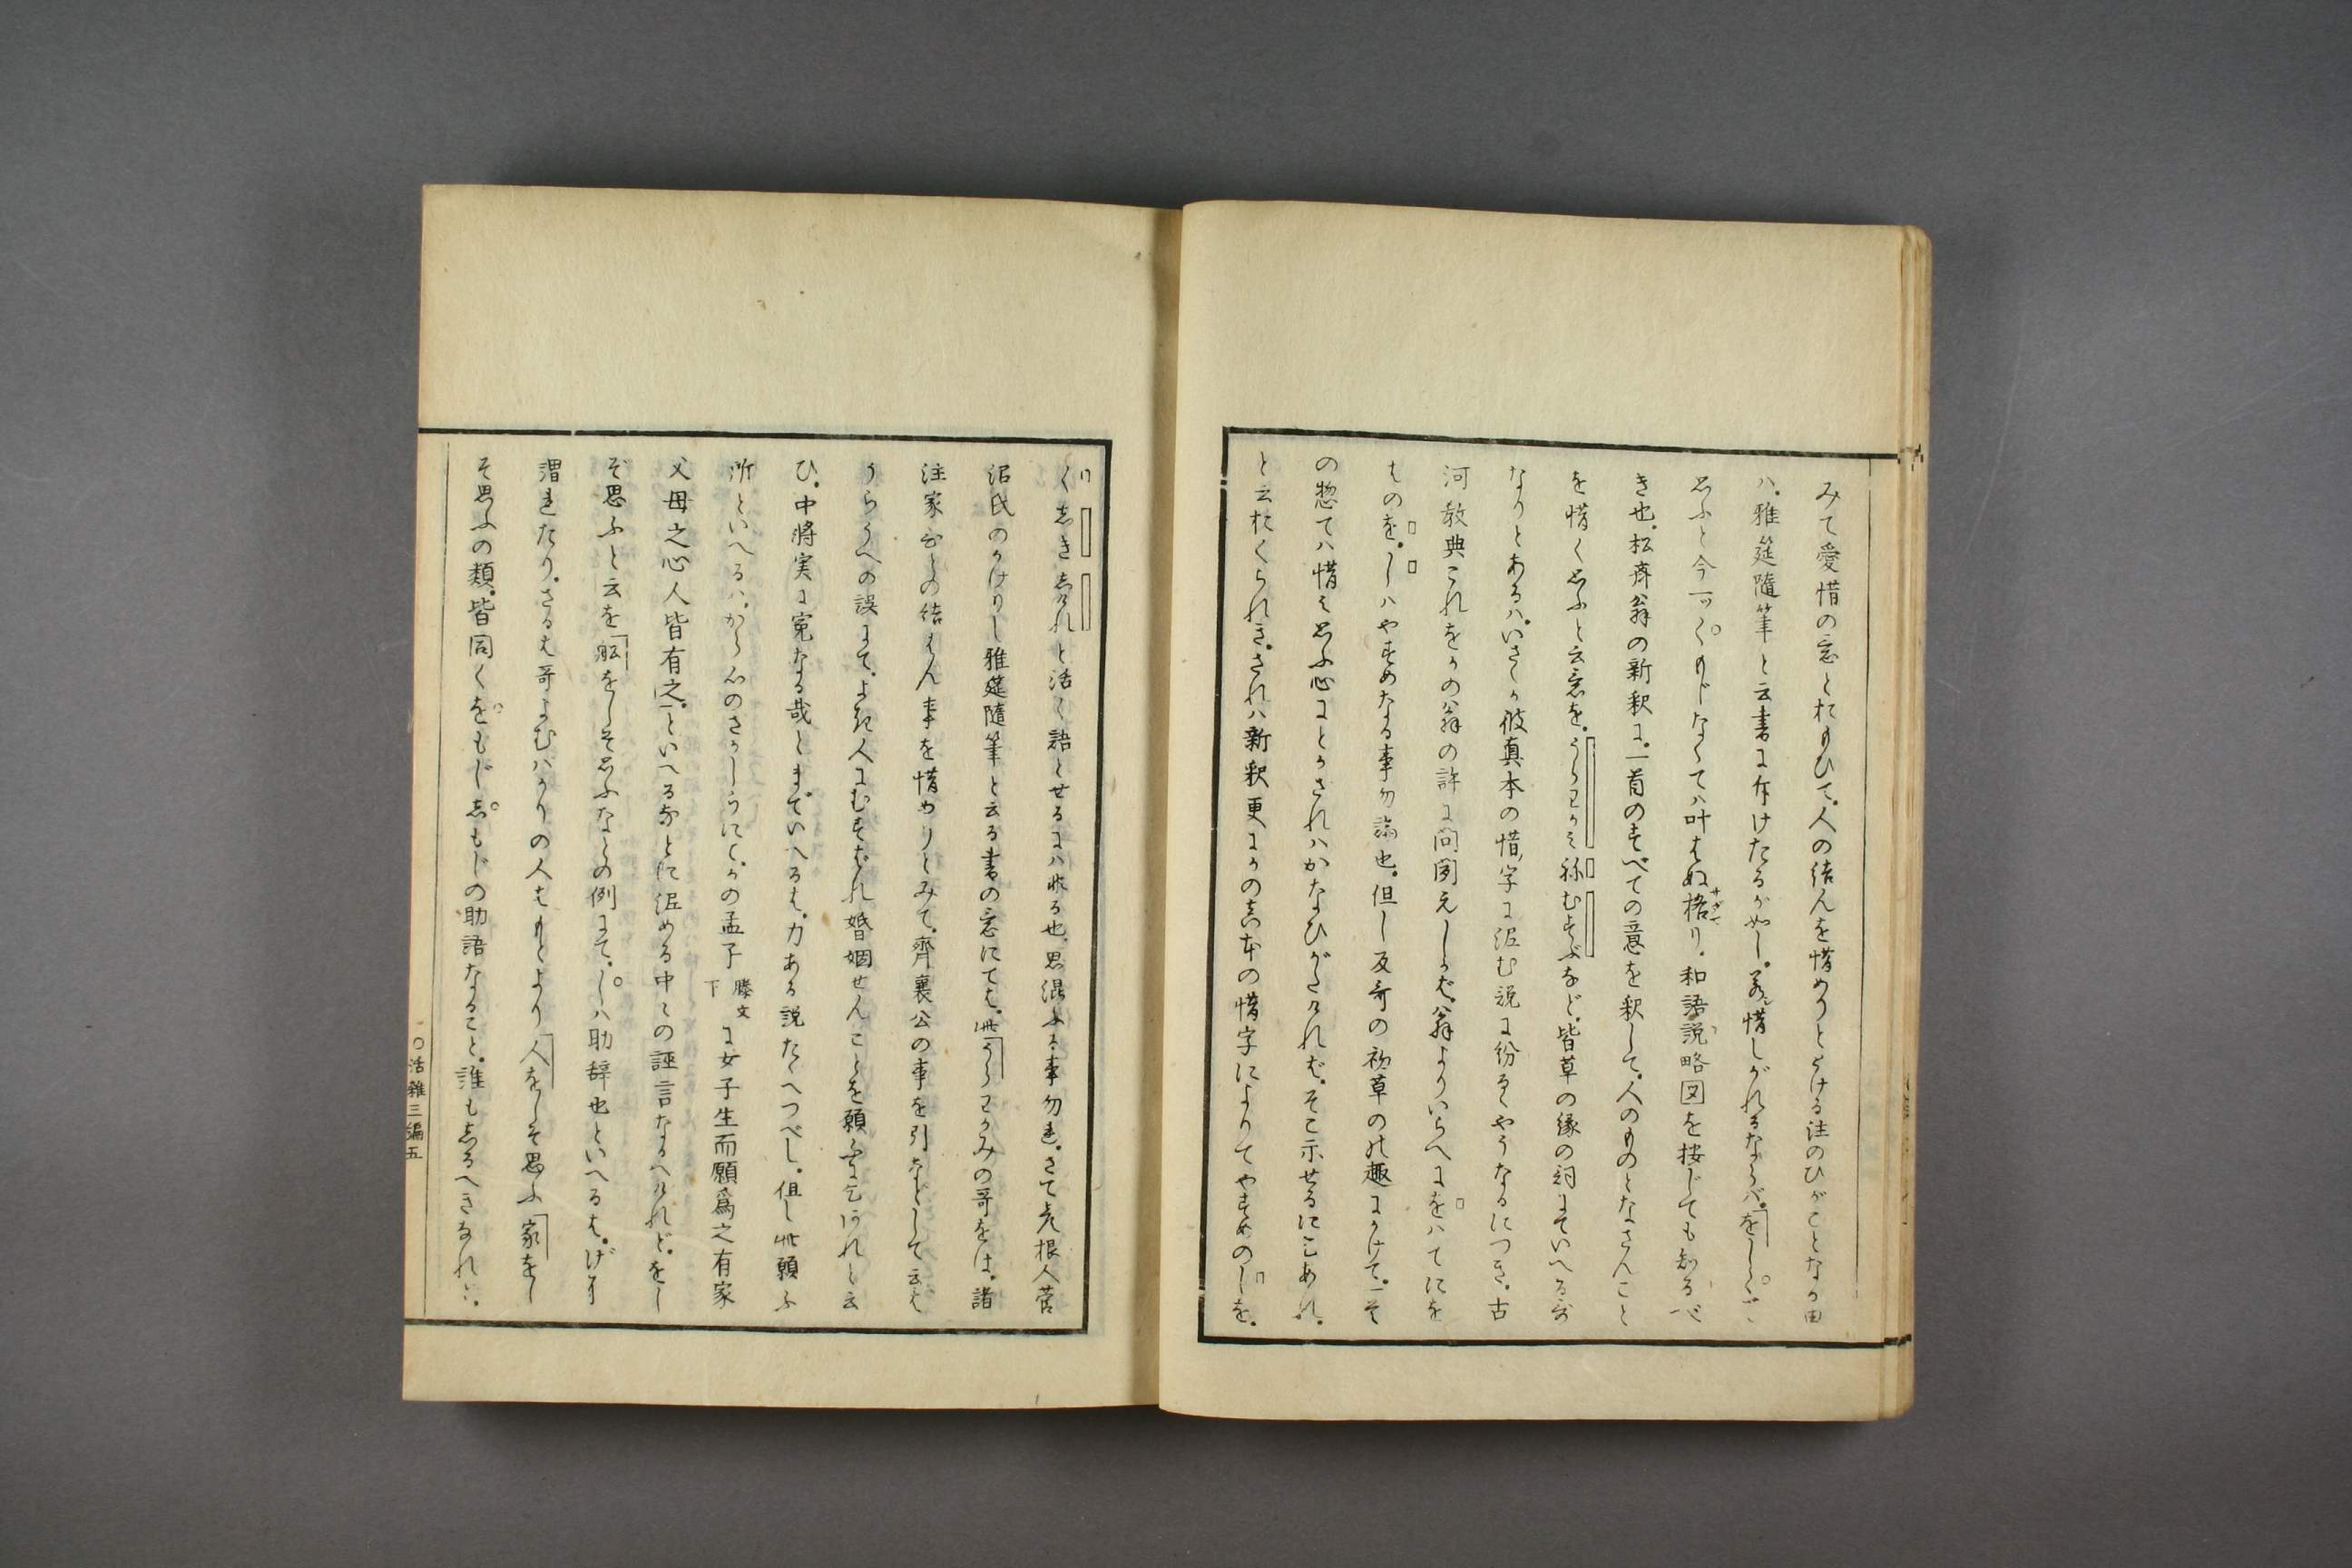 みて愛惜の意とおもひて。人の結んを惜めりととける注のひがことなる由
ハ。雅莚随筆と云書に弁けたるが如し。若シ惜しがれるならバ。をしくご
思ふと今一つく。もじなくてハ叶はぬ格り。和語説略図を按じても知るべ
き也。松斉翁の新釈に。一首のすべての意を釈して。人のものとなさんこと
を惜く思ふと云意を。うらわかみねむすぶなど。皆草の縁の詞にていへる哥
なりとあるハ。いさゝか彼真本の惜字に泥む説に紛るゝやうなるにつき。古
河教典これをかの翁の許に問聞えしかば。翁よりいらへにをハてにを
はのを。しハやすめなる事勿論也。但し反哥の初草の趣にかけて。そ
の惣てハ惜く思ふ心にとかされハかなひがたけれは。そこ示せるにこあれ。
と云おくられき。されハ新釈更にかの真本の惜字によりてやすめのしを。
くしきしけれと活く語とせるにハ非る也。思混ふる事勿れ。さて彦根人菅
沼氏のかけりし雅莚随筆と云る書の意にては。此うらわかみの哥をは。諸
注家むとの結はん事を惜めりとみて。齊襄公の事を引などして云は
うらうへの誤にて。よき人にむすばれ婚姻せんことを願ふに云り。われと云
ひ。中将実に寃なる哉とまでいへるは。力ある説たくへつべし。但し此願ふ
所といへるハ。からゝのさかしうにく。かの孟子滕文下に女子生而願為之有家
父母之心人皆有之。といへるなとに泥める中々の誣言なるへけれど。をし
ぞ思ふと云を船をしぞ思ふなとの例にて。しハ助辞也といへるは。げに
謂れたり。さるは哥よむハかりの人はもとより人をしそ思ふ家をし
そ思ふの類。皆同くをもじしもじの助語なること。誰もしるへきなれハ。
〇活雑三編五